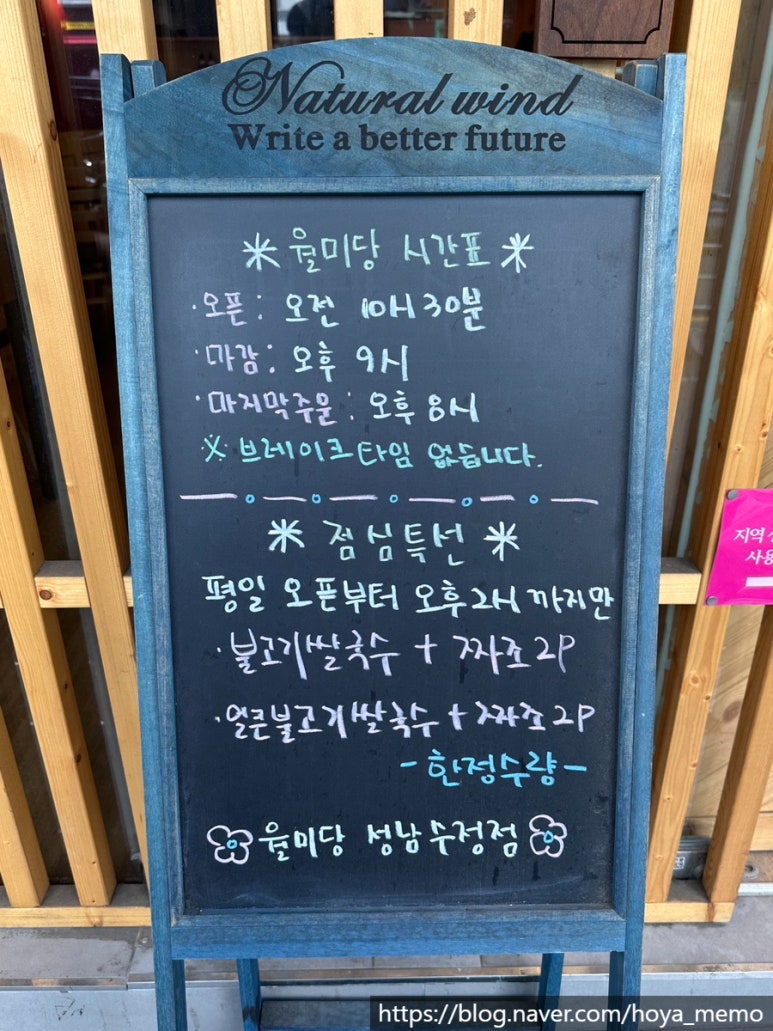 Natural wind
Write a better future
월미당 시간표
· 오픈 : 오전 10시 30분
· 마감 : 오후 9시
· 마지막주문 : 오후 8시
※ 브레이크타임 없습니다.
점심특선
평일 오픈부터 오후 2시 까지만
· 불고기쌀국수 + 짜조 2P
· 얼큰불고기쌀국수 + 짜조 2P
- 한정수량 -
월미당 성남수정점
지역
사용
https://blog.naver.com/hoya_memo